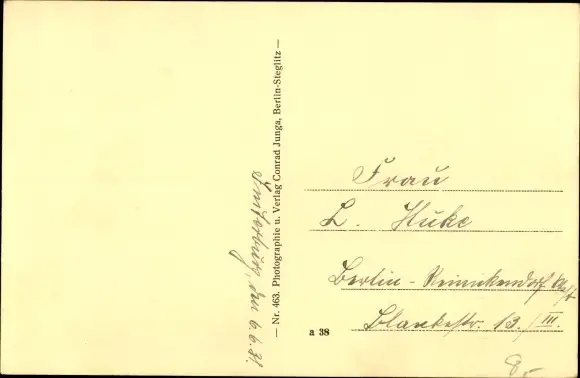 Insterburg, den 6.6.31.
— Nr. 463. Photographie u. Verlag Conrad Junga, Berlin-Steglitz —
Frau
L. Huke
Berlin - Reinickendorf West
Blankestr. 13./III.
a 38